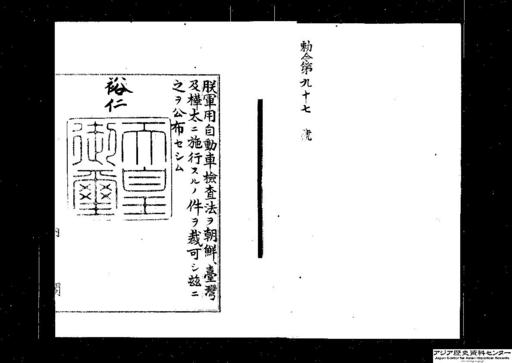 勅令第九十七號
朕軍用自動車檢査法ヲ朝鮮、臺灣
及樺太ニ施行スルノ件ヲ裁可シ茲ニ
之ヲ公布セシム
裕仁
天皇
御璽
内閣
アジア歴史資料センター
Japan Center for Asian Historical Records